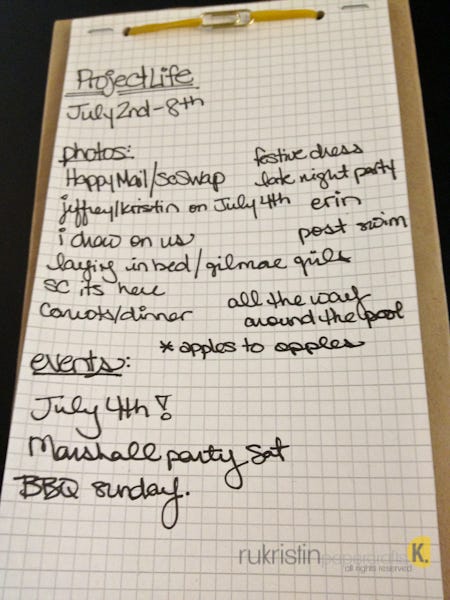 Project Life
July 2nd-8th
photos:
Happy Mail/SCSwap
jeffrey/kristin on July 4th
i chow on us
laying in bed/gilmore girls
SC its here
Carrots/dinner
festive dress
late night party
erin
post swim
all the way
around the pool
* apples to apples
events:
July 4th!
Marshall party Sat
BBQ sunday.
rukristinpapercrafts K.
all rights reserved